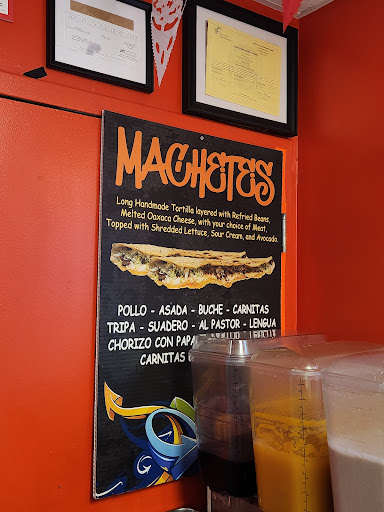 MACHETES
Long Handmade Tortilla layered with Refried Beans,
Melted Oaxaca Cheese, with your choice of Meat,
Topped with Shredded Lettuce, Sour Cream, and Avocado.
POLLO - ASADA - BUCHE - CARNITAS
TRIPA - SUADERO - AL PASTOR - LENGUA
CHORIZO CON PAPA
CARNITAS